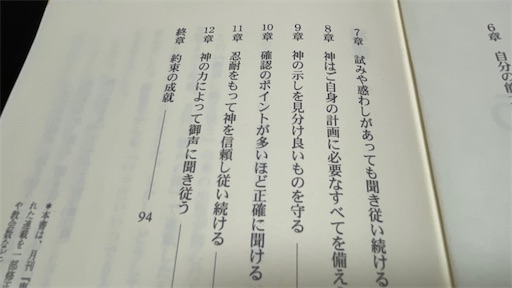 6章 自分の
7章 試みや惑わしがあっても聞き従い続ける
8章 神はご自身の計画に必要なすべてを備え
9章 神の示しを見分け良いものを守る
10章 確認のポイントが多いほど正確に聞ける
11章 忍耐をもって神を信頼し従い続ける
12章 神の力によって御声に聞き従う
終章 約束の成就 94
＊本書は、月刊
れた連載を一部修正
や教会数など